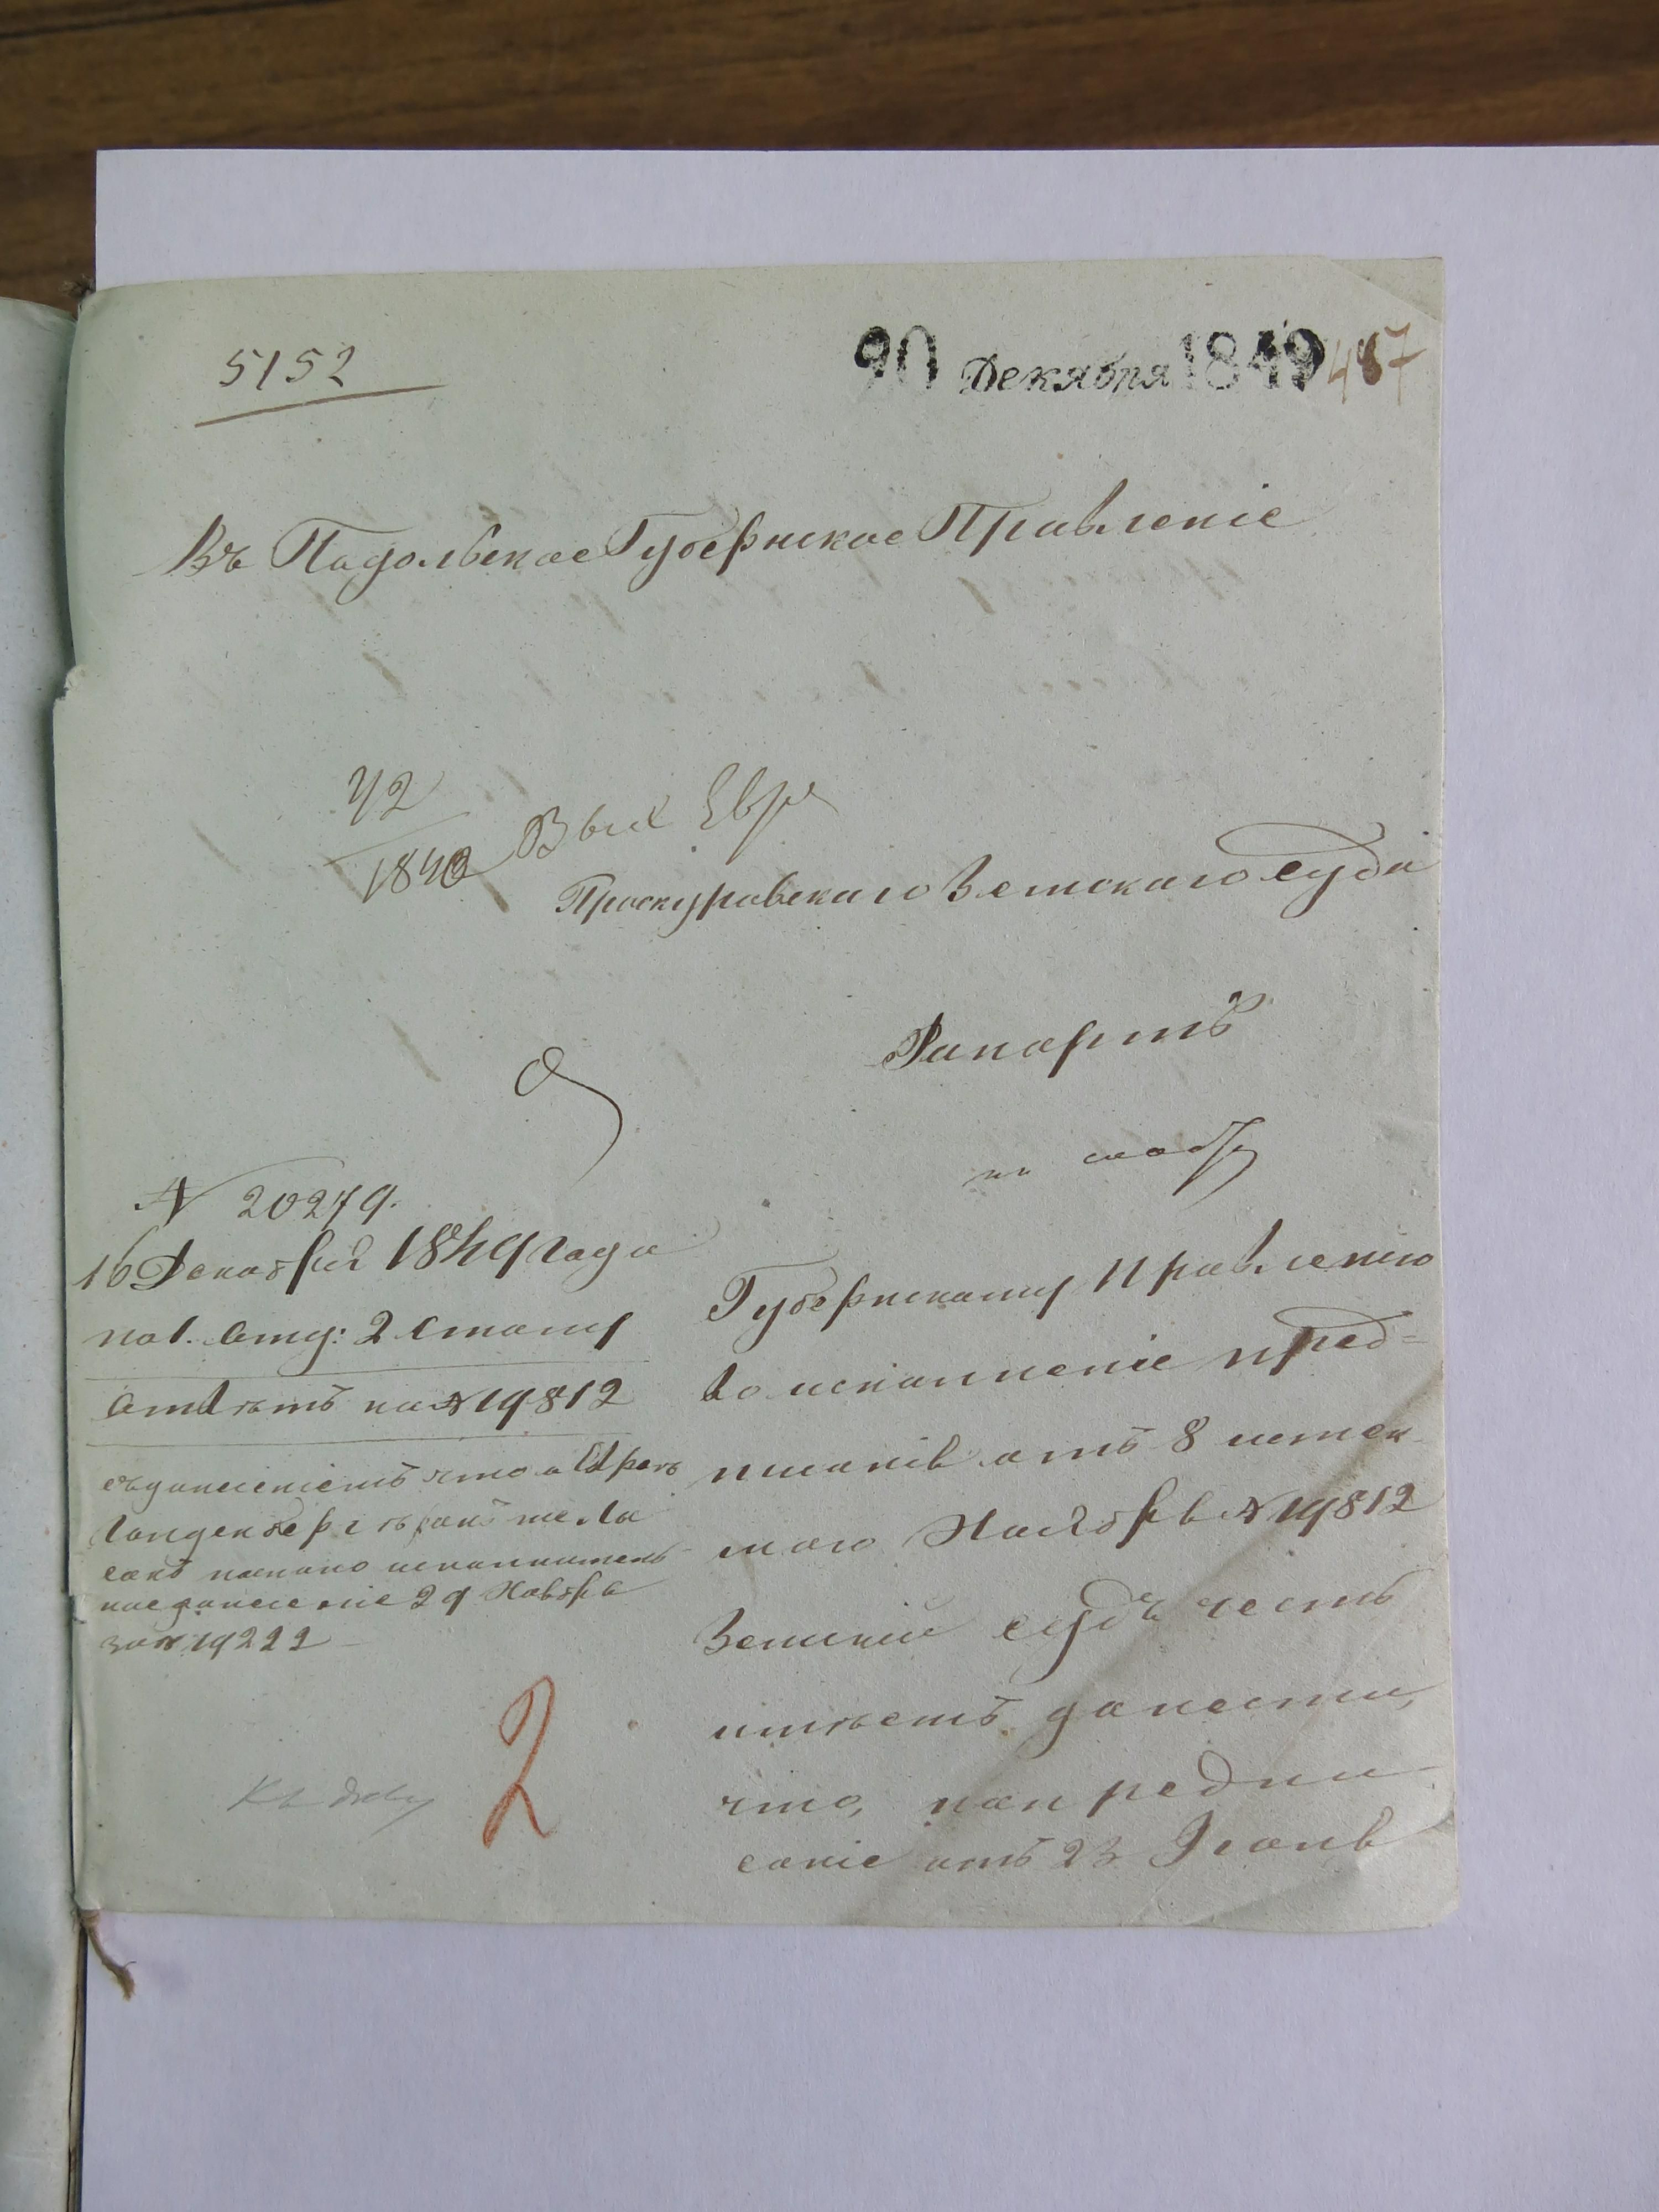 5152
20 Декабря 1849 487
Въ Подольское Губернское Правленіе
42
1840 Вых Евре
Проскуровского Земского Суда
Рапортъ
№ 20279.
16 Декабря 1849 года
по 1. Отд: 2 Столу
Отвѣтъ на № 19812
съ донесеніемъ что о Евреѣ
послано исполнитель-
ное донесеніе 29 Ноября
за № 19222
Губернскому Правленію
во исполненіе пред=
писанія отъ 8 истек-
шаго Ноября № 19812
Земскій Судъ честь
имѣетъ донести,
что, на предпи-
саніе отъ 23 Іюня
2
Къ дѣлу